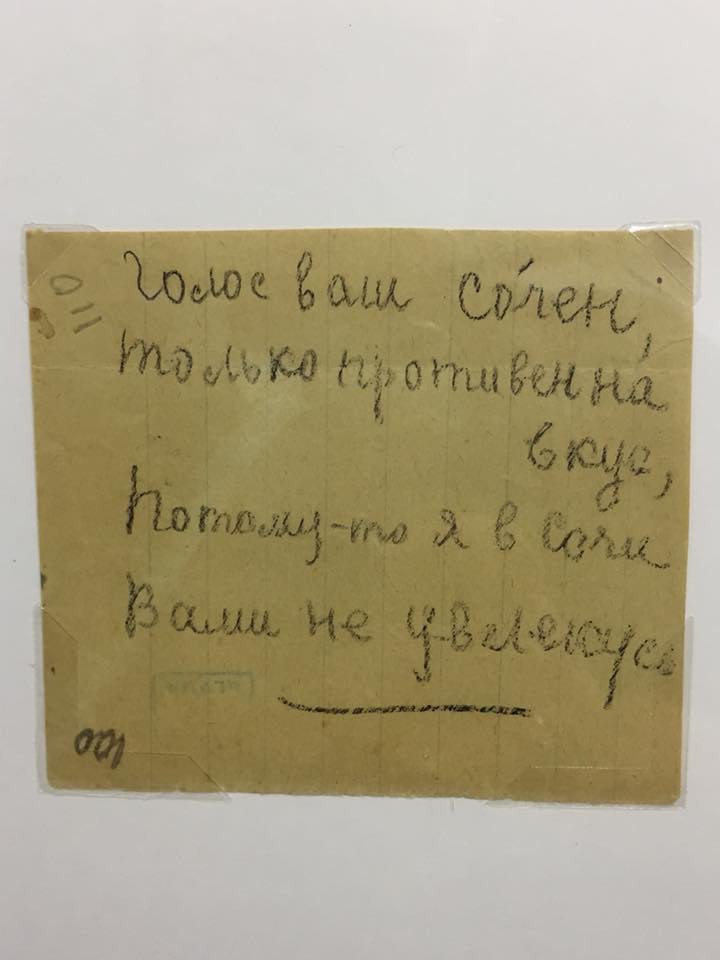 110
Голос ваш со́чен,
только противен на́
вкус,
Потому-то я в Сочи
Вами не увлекусь
100